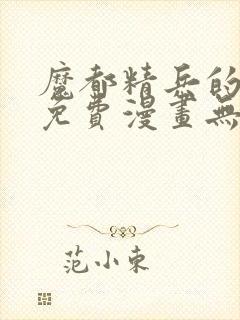 魔都精兵的
免費漫畫無
范小東